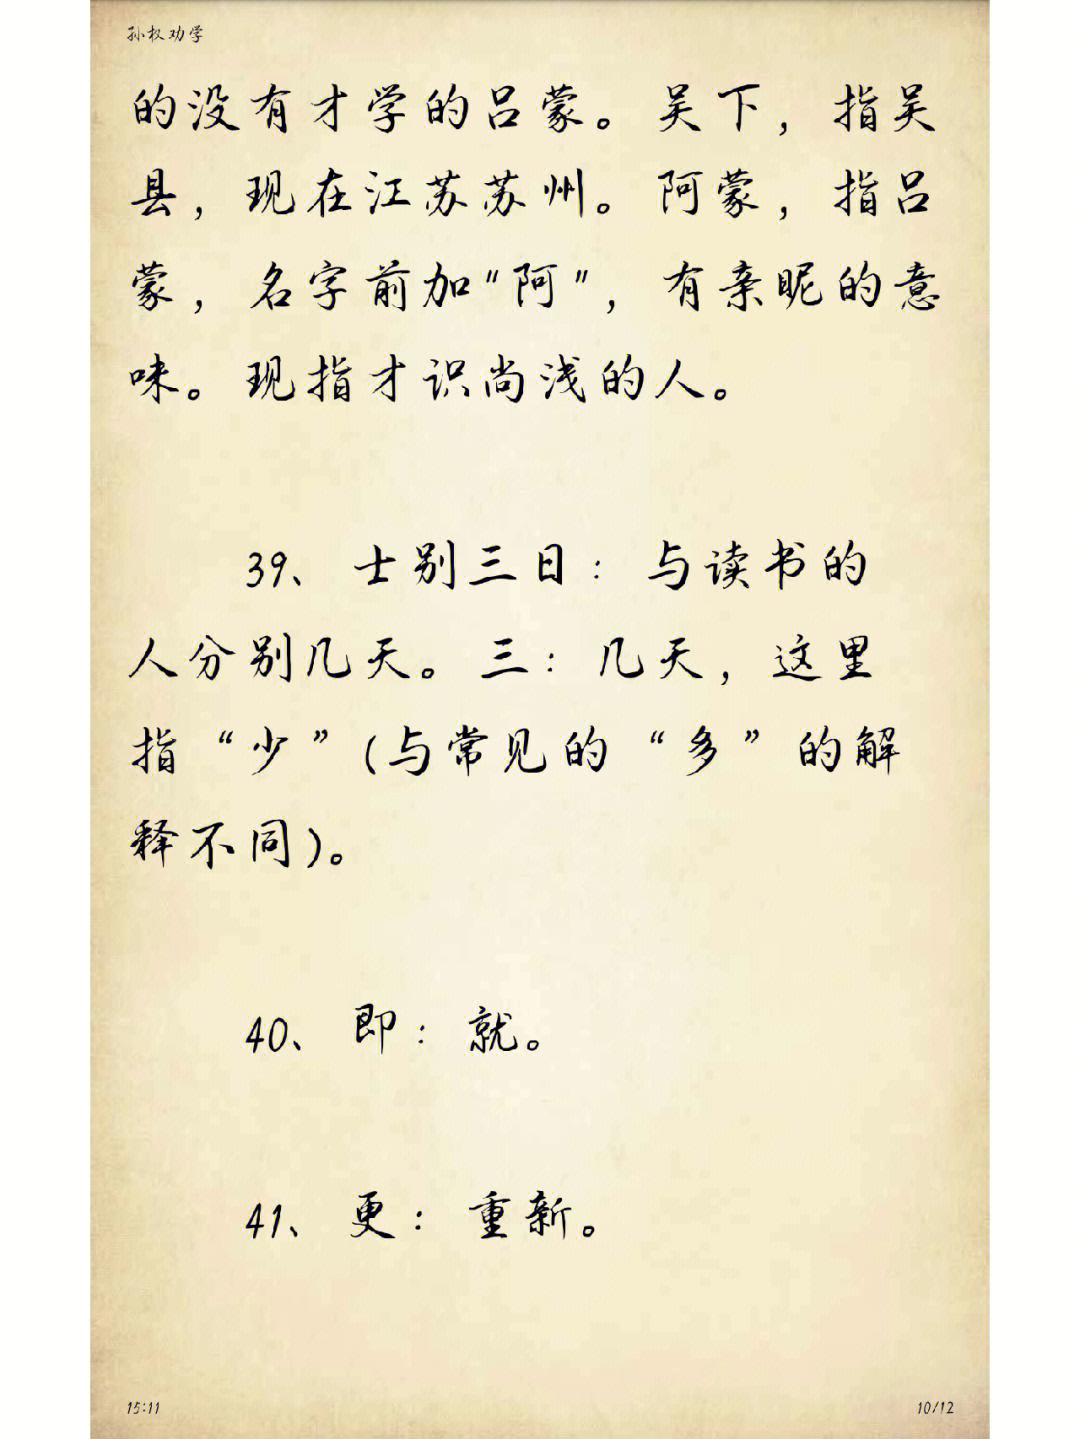 孙权劝学
的没有才学的吕蒙。吴下，指吴
县，现在江苏苏州。阿蒙，指吕
蒙，名字前加"阿"，有亲昵的意
味。现指才识尚浅的人。
39、士别三日：与读书的
人分别几天。三：几天，这里
指“少”(与常见的“多”的解
释不同)。
40、即：就。
41、更：重新。
15:11
10/12